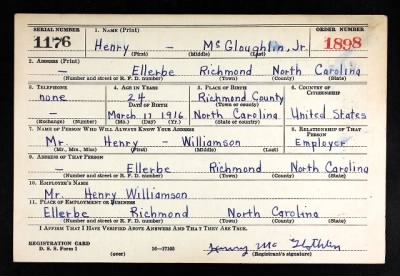 SERIAL NUMBER 1. NAME (Print) ORDER NUMBER
1176 Henry — McGloughlin, Jr. 1898
(First) (Middle) (Last)
2. ADDRESS (Print)
— Ellerbe Richmond North Carolina
(Number and street or R. F. D. number) (Town) (County) (State)
3. TELEPHONE 4. AGE IN YEARS 5. PLACE OF BIRTH 6. COUNTRY OF CITIZENSHIP
none 24 Richmond County
DATE OF BIRTH (Town or county)
— March 11 1916 North Carolina United States
(Exchange) (Number) (Mo.) (Day) (Yr.) (State or country)
7. NAME OF PERSON WHO WILL ALWAYS KNOW YOUR ADDRESS 8. RELATIONSHIP OF THAT PERSON
Mr. Henry — Williamson Employer
(Mr., Mrs., Miss) (First) (Middle) (Last)
9. ADDRESS OF THAT PERSON
— Ellerbe Richmond North Carolina
(Number and street or R. F. D. number) (Town) (County) (State)
10. EMPLOYER'S NAME
Mr. Henry Williamson
11. PLACE OF EMPLOYMENT OR BUSINESS
Ellerbe Richmond North Carolina
(Number and street or R. F. D. number) (Town) (County) (State)
I AFFIRM THAT I HAVE VERIFIED ABOVE ANSWERS AND THAT THEY ARE TRUE.
REGISTRATION CARD
D. S. S. Form 1 16—17105 Henry Mc
(over) (Registrant's signature)